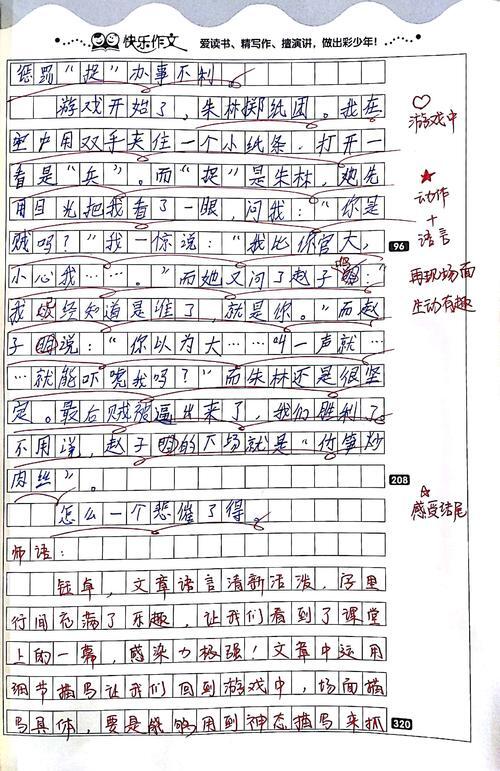 快乐作文 爱读书、精写作、擅演讲，做出彩少年！
惩罚“捉”办事不利。
游戏开始了，朱林掷纸团。我在
座户用双手夹住一个小纸条，打开一
看是“兵”。而“捉”是朱林，她先
用目光把我看了一眼，问我：“你是
贼吗？”我一惊说：“我比你官大，
小心我……。”而她又问了赵子明：“
我已经知道是谁了，就是你。”而赵
子明说：“你以为大……叫一声就…
…就能吓唬我吗？”而朱林还是很坚
定。最后贼被逼出来了，我们胜利了
不用说，赵子明的下场就是“竹笋炒
肉丝”。
怎么一个悲催了得。
师语：
钰卓，文章语言清新活泼，字里
行间充满了乐趣，让我们看到了课堂
上的一幕，感染力极强！文章中运用
细节描写让我们回到游戏中，场面描
写具体，要是能够用到神态描写来抓
游戏中
动作
+
语言
96
再现场面
生动有趣
208
感受结尾
320